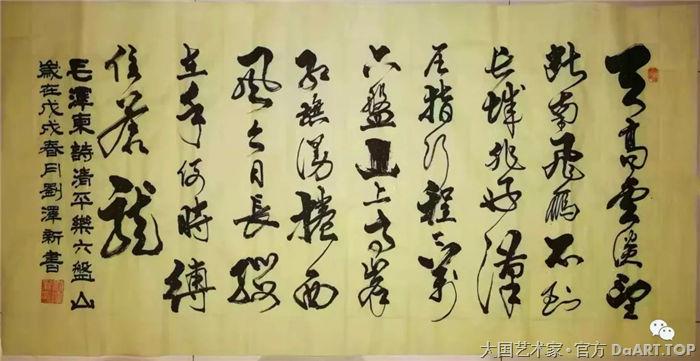 天高雲淡望
断南飛鴈不到
长城非好漢
屈指行程二萬
六盤山上高峯
红旗漫捲西
風今日長纓
在手何時縛
住蒼龍
毛澤東詩清平樂六盤山
歲在戊戌春月劉澤新書
大国艺术家·官方 DaART.TOP